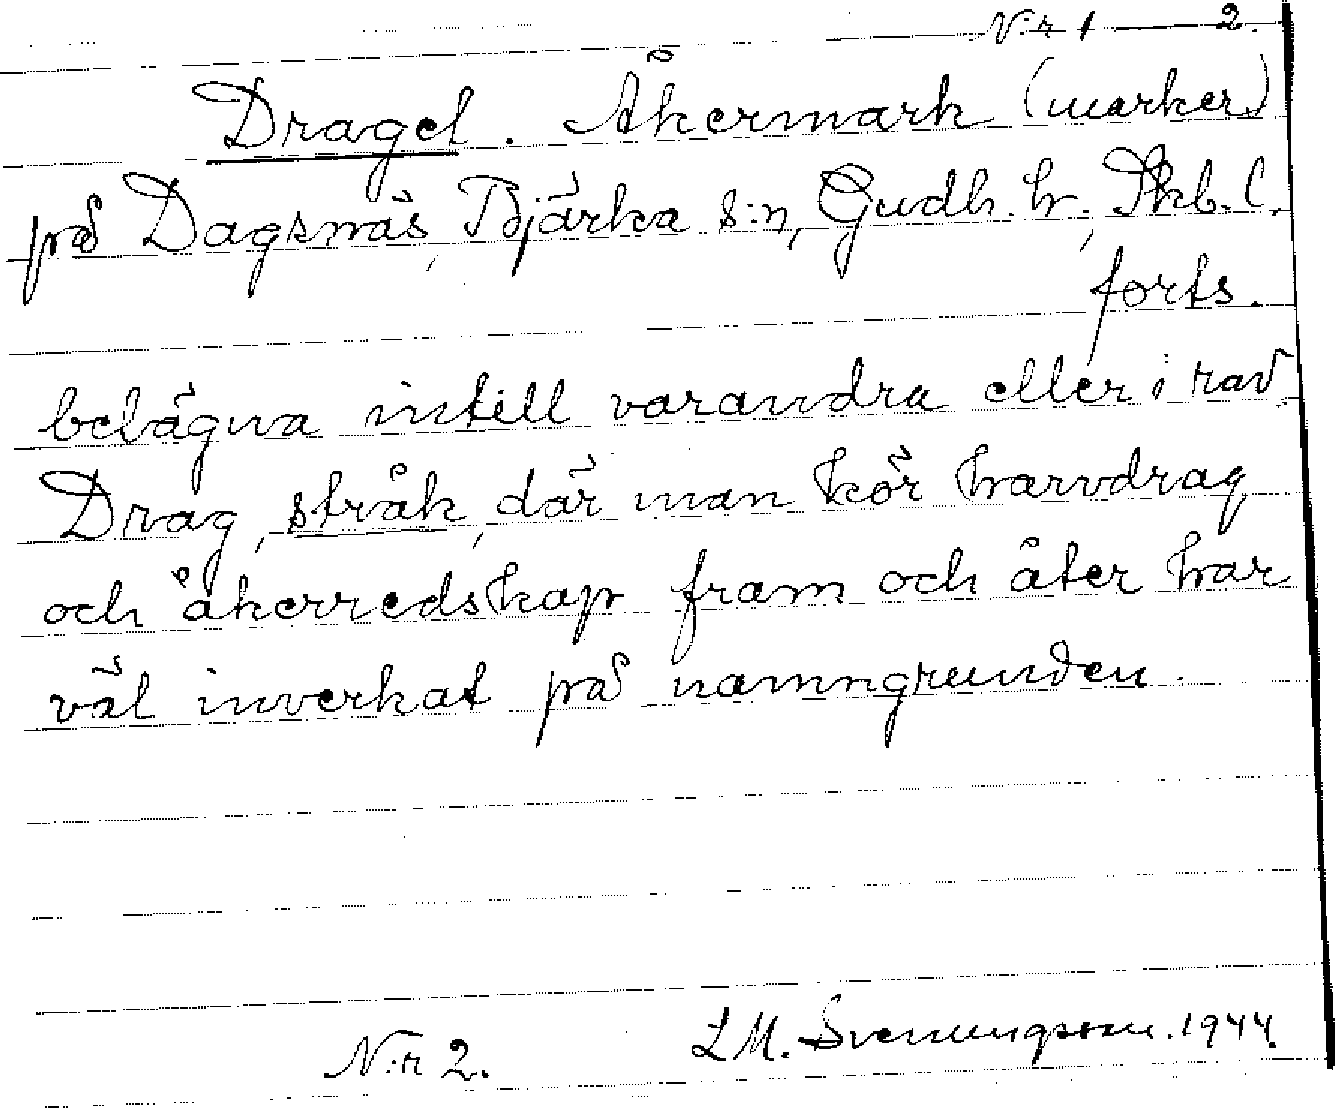 N:r 1 — 2.
Draget. Åkermark (marker)
på Dagsnäs, Bjärka s:n, Gudh. hr, Skb. l.
forts.
belägna intill varandra eller i rad.
Drag, stråk, där man kör harvdrag
och åkerredskap fram och åter har
väl inverkat på namngrunden.
N:r 2. L M. Svenungsson. 1944.